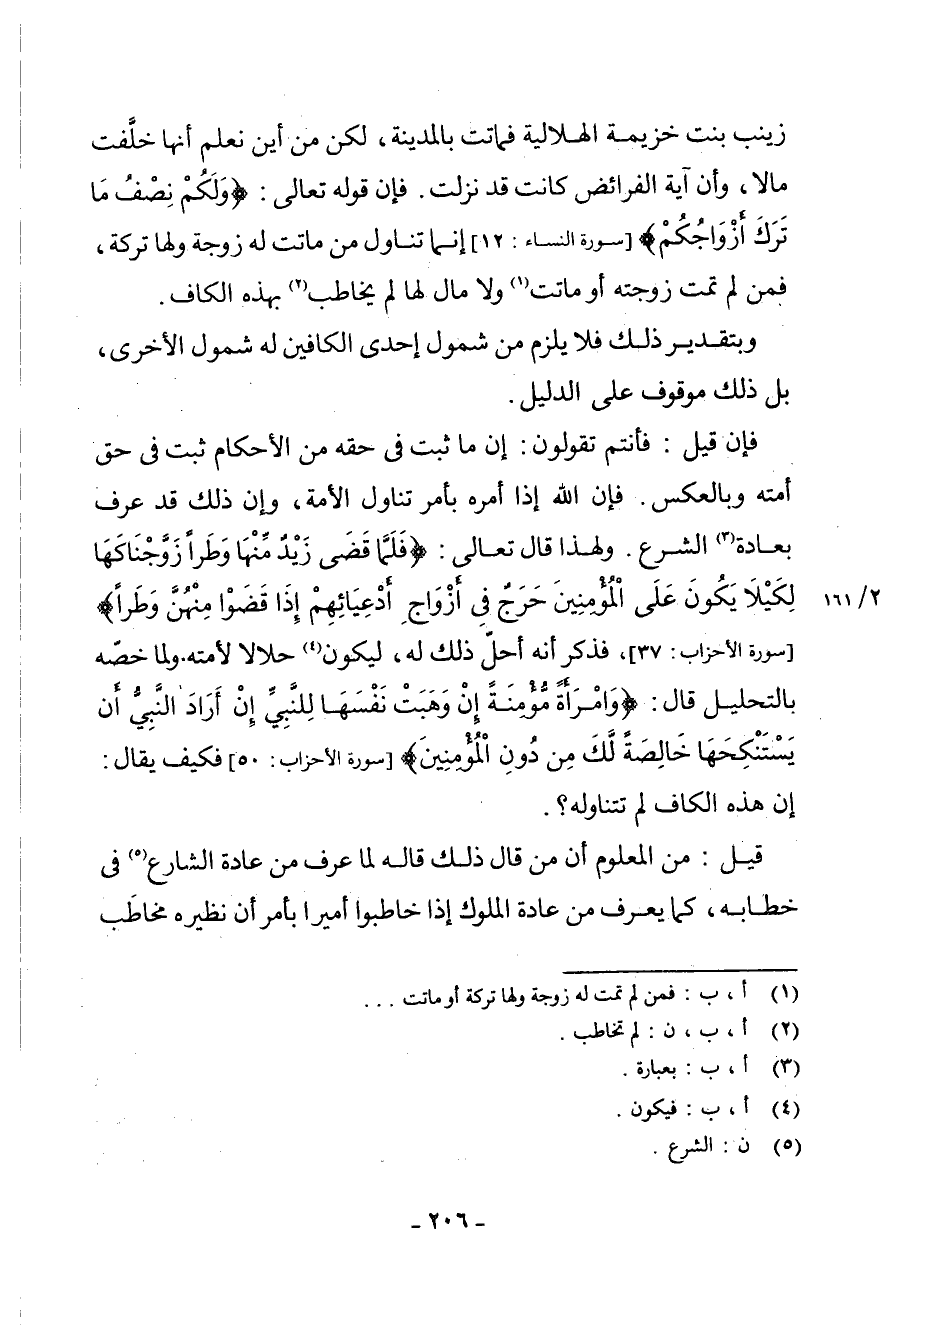 زينب بنت خزيمة الهلالية فماتت بالمدينة، لكن من أين نعلم أنها خلَّفت
مالا، وأن آية الفرائض كانت قد نزلت. فإن قوله تعالى: ﴿وَلَكُمْ نِصْفُ مَا
تَرَكَ أَزْوَاجُكُمْ﴾ [سورة النساء: ١٢] إنما تناول من ماتت له زوجة ولها تركة،
فمن لم تمت زوجته أو ماتت(١) ولا مال لها لم يخاطب(٢) بهذه الكاف.
وبتقدير ذلك فلا يلزم من شمول إحدى الكافين له شمول الأخرى،
بل ذلك موقوف على الدليل.
فإن قيل: فأنتم تقولون: إن ما ثبت فى حقه من الأحكام ثبت فى حق
أمته وبالعكس. فإن الله إذا أمره بأمر تناول الأمة، وإن ذلك قد عرف
بعادة(٣) الشرع. ولهذا قال تعالى: ﴿فَلَمَّا قَضَى زَيْدٌ مِّنْهَا وَطَراً زَوَّجْنَاكَهَا
لِكَيْلَا يَكُونَ عَلَى الْمُؤْمِنِينَ حَرَجٌ فِى أَزْوَاجِ أَدْعِيَائِهِمْ إِذَا قَضَوْا مِنْهُنَّ وَطَراً﴾ ١٦١/٢
[سورة الأحزاب: ٣٧]، فذكر أنه أحلّ ذلك له، ليكون(٤) حلالا لأمته. ولما خصّه
بالتحليل قال: ﴿وَامْرَأَةً مُّؤْمِنَةً إِنْ وَهَبَتْ نَفْسَهَا لِلنَّبِيِّ إِنْ أَرَادَ النَّبِيُّ أَن
يَسْتَنْكِحَهَا خَالِصَةً لَّكَ مِن دُونِ الْمُؤْمِنِينَ﴾ [سورة الأحزاب: ٥٠] فكيف يقال:
إن هذه الكاف لم تتناوله؟.
قيل: من المعلوم أن من قال ذلك قاله لما عرف من عادة الشارع(٥) فى
خطابه، كما يعرف من عادة الملوك إذا خاطبوا أميرا بأمر أن نظيره مخاطَب
(١) أ، ب: فمن لم تمت له زوجة ولها تركة أو ماتت ...
(٢) أ، ب، ن: لم تخاطب.
(٣) أ، ب: بعبارة.
(٤) أ، ب: فيكون.
(٥) ن: الشرع.
- ٢٠٦ -